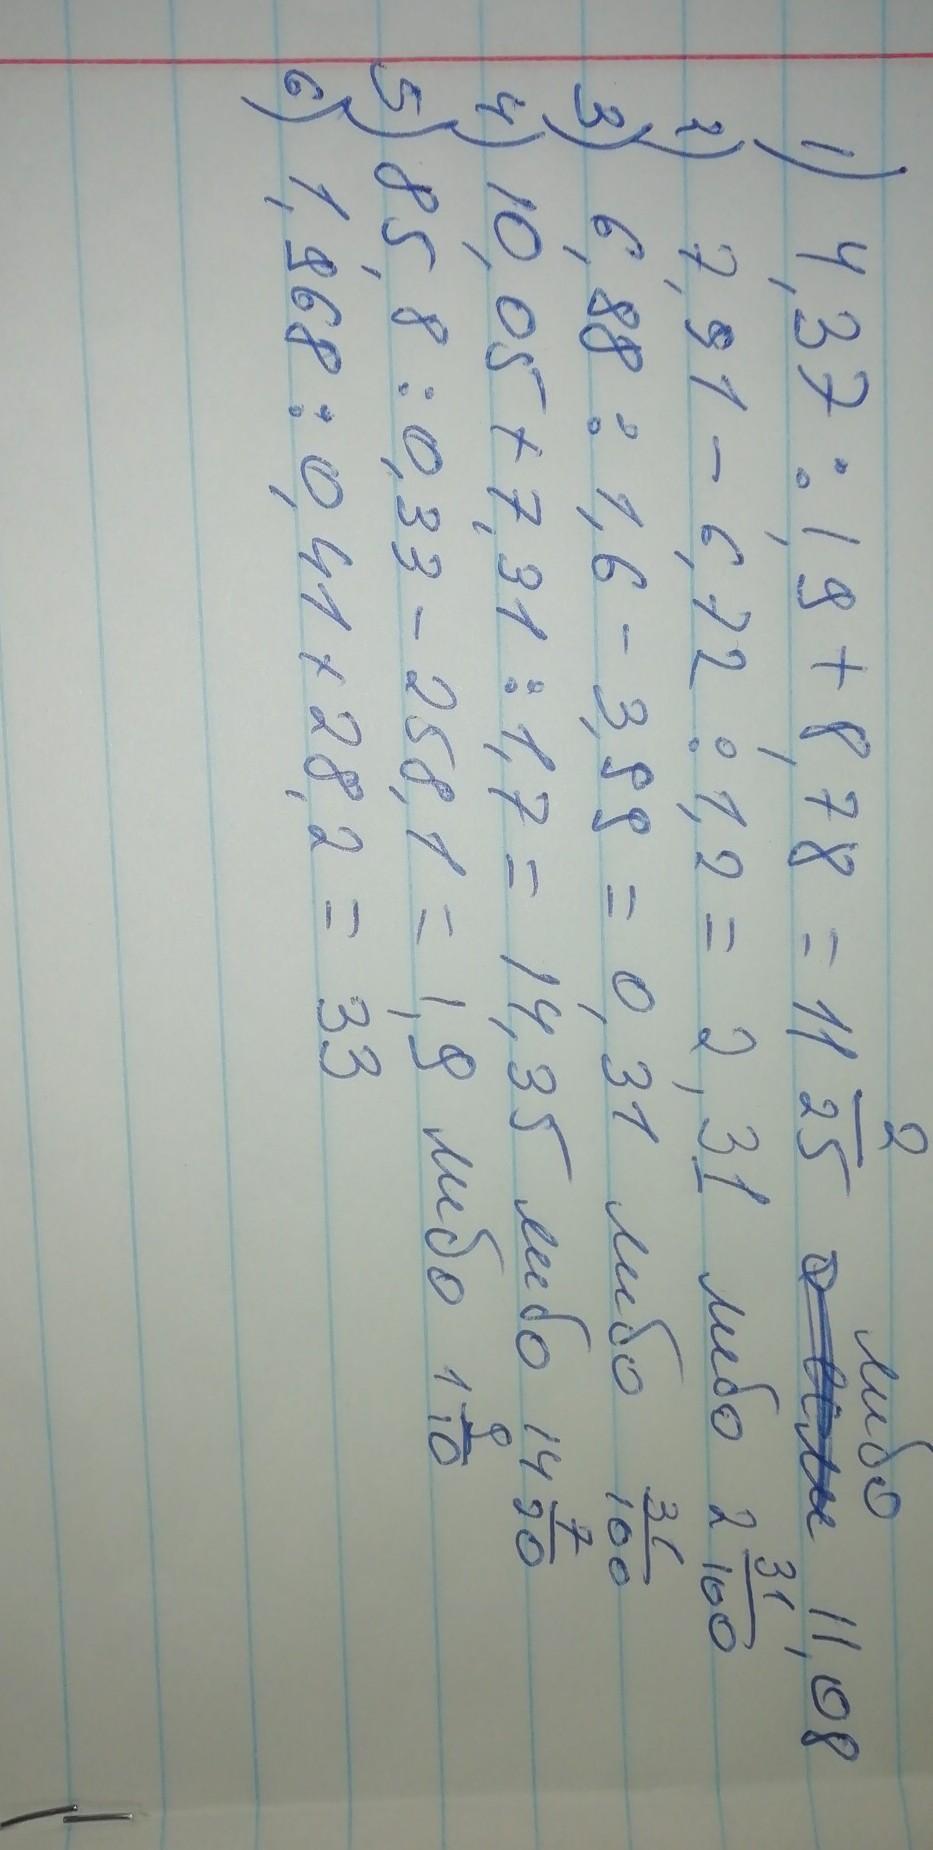 1) 4,37 : 1,9 + 8,78 = 11 2/25 либо 11,08
2) 7,91 - 6,72 : 1,2 = 2,31 либо 2 31/100
3) 6,88 : 1,6 - 3,99 = 0,31 либо 31/100
4) 10,05 + 7,31 : 1,7 = 14,35 либо 14 7/20
5) 85,8 : 0,33 - 258,1 = 1,9 либо 1 9/10
6) 1,968 : 0,41 + 28,2 = 33